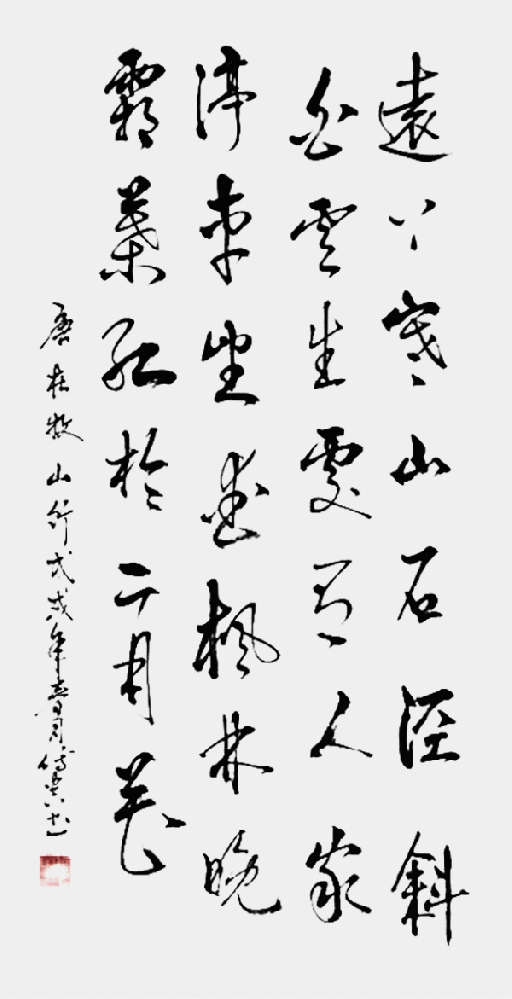 遠上寒山石徑斜
白雲生處有人家
停車坐愛楓林晚
霜葉紅於二月花
唐杜牧山行戊戌年春月書